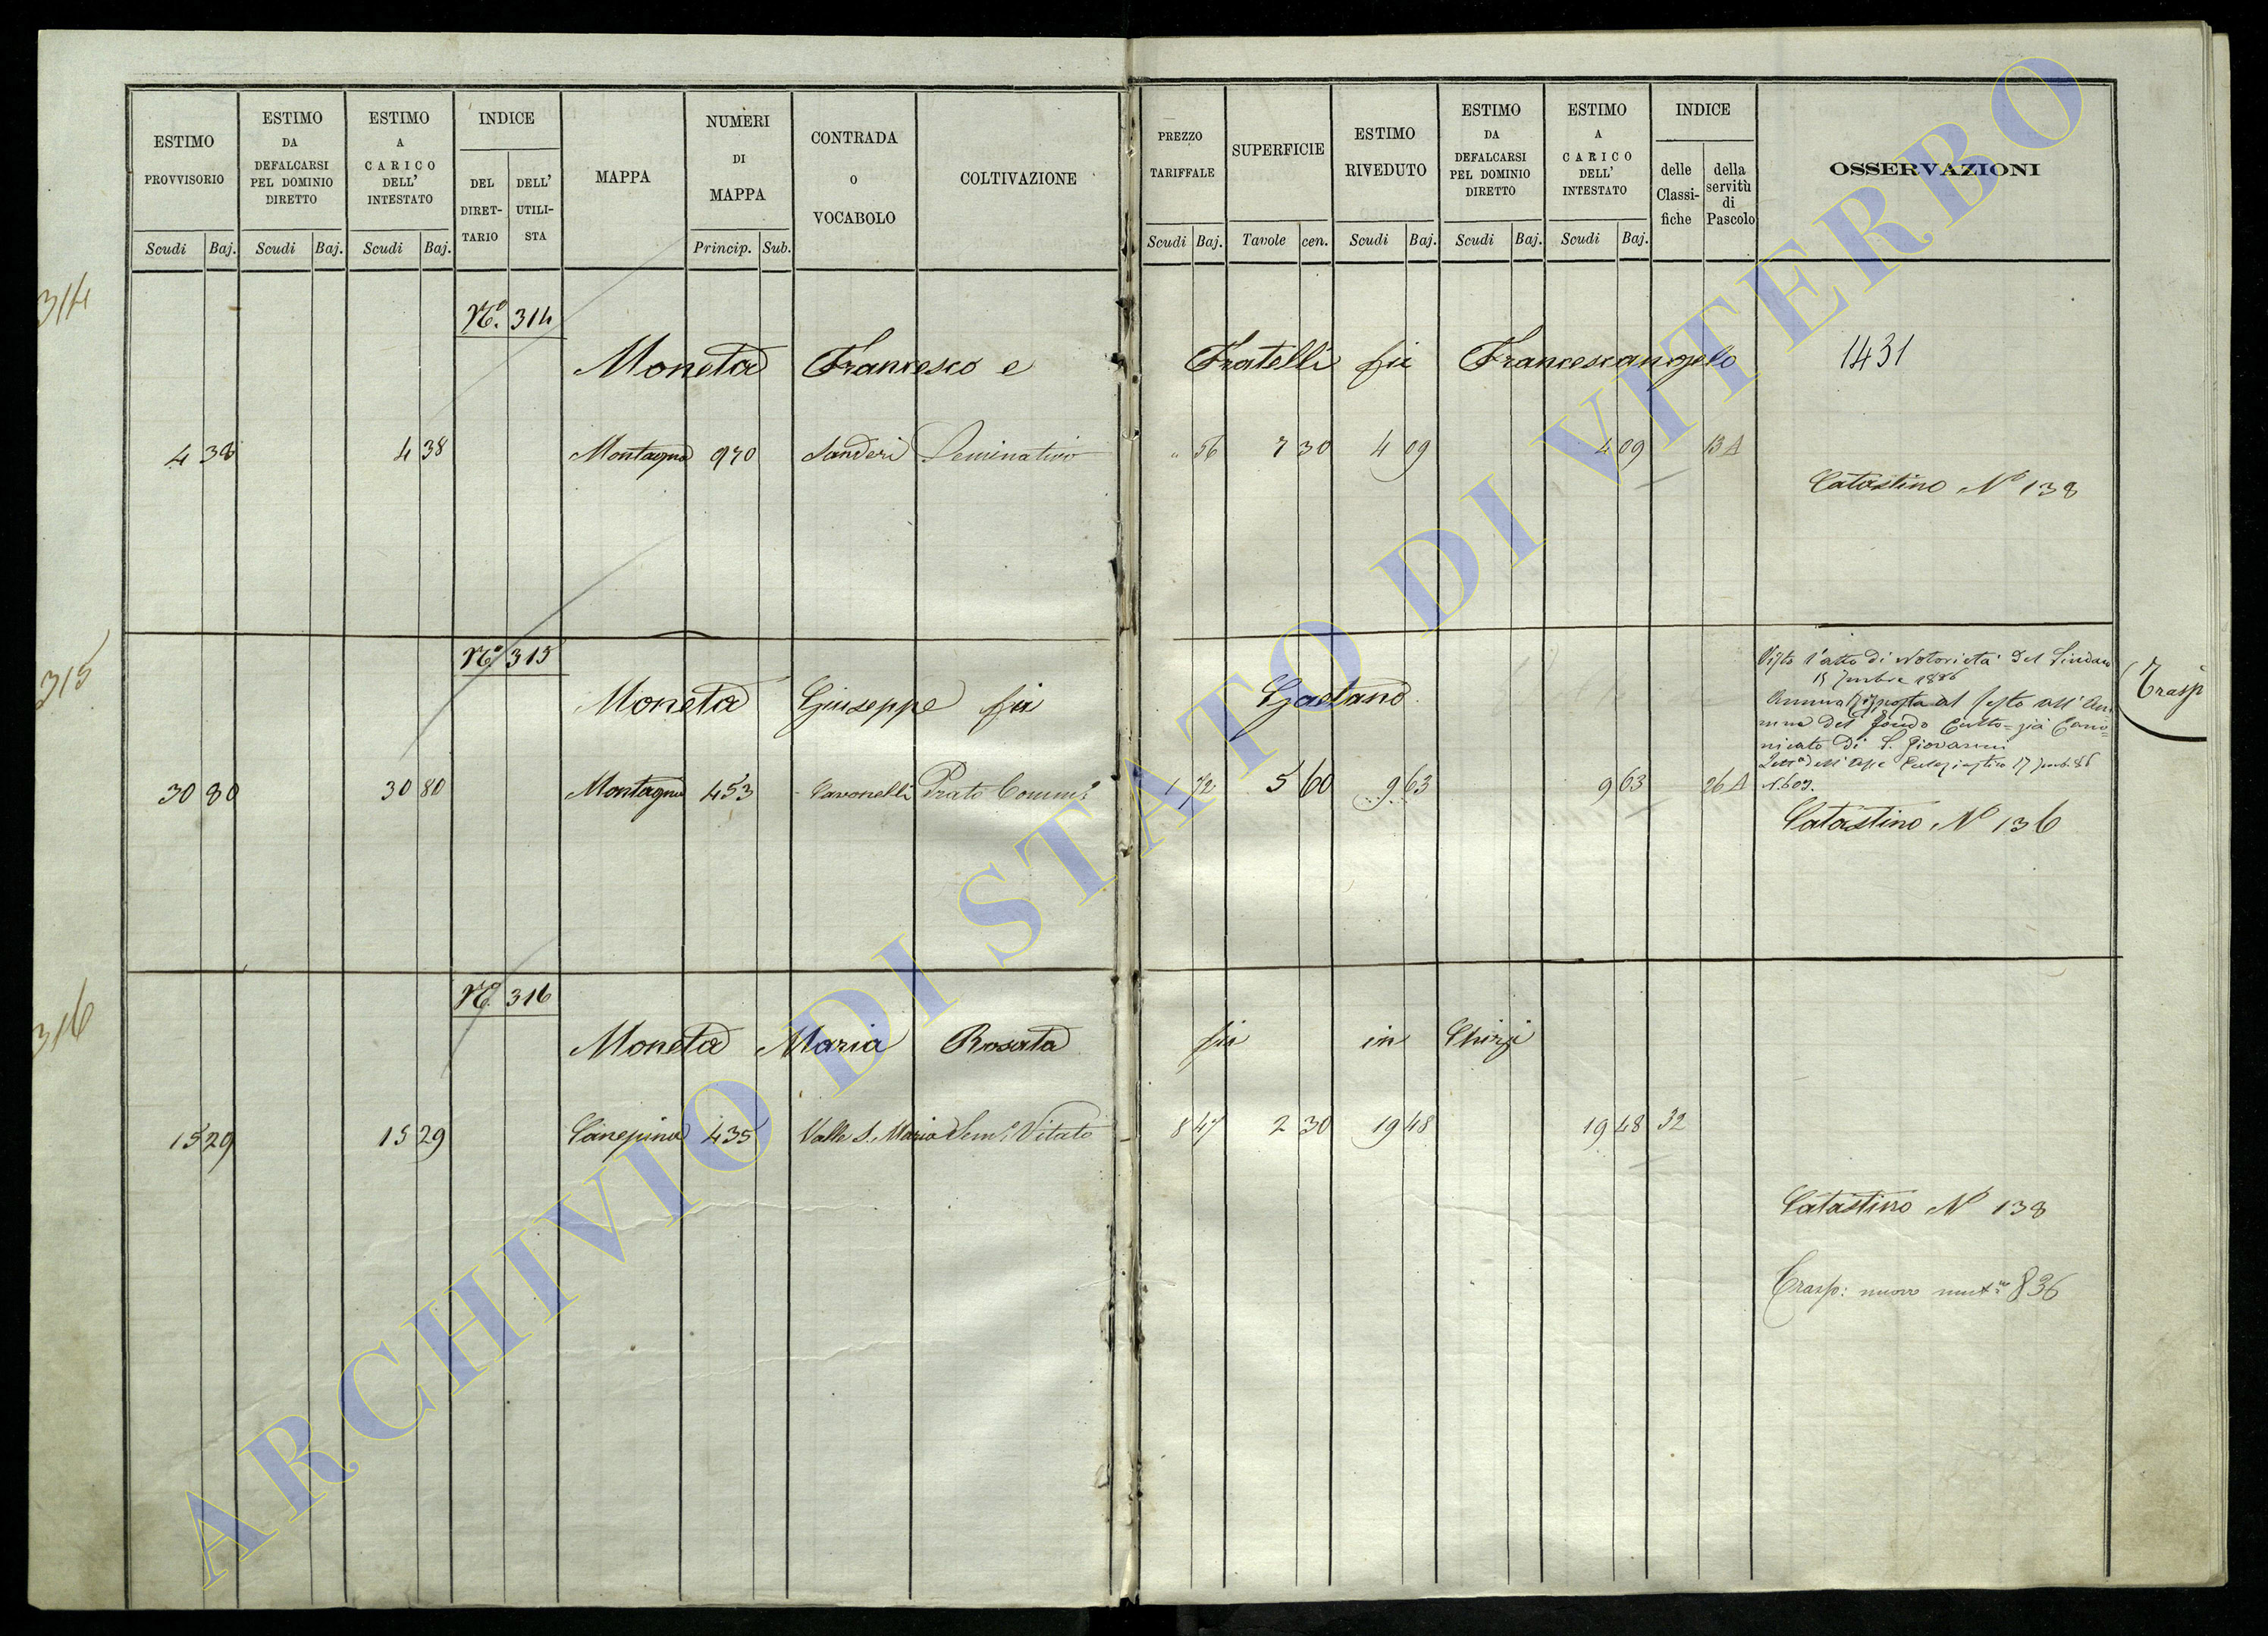 ESTIMO PROVVISORIO Scudi Baj.
ESTIMO DA DEFALCARSI PEL DOMINIO DIRETTO Scudi Baj.
ESTIMO A CARICO DELL' INTESTATO Scudi Baj.
INDICE DEL DIRET-TARIO DELL' UTILI-STA
MAPPA
NUMERI DI MAPPA Princip. Sub.
CONTRADA O VOCABOLO
COLTIVAZIONE
PREZZO TARIFFALE Scudi Baj.
SUPERFICIE Tavole cen.
ESTIMO RIVEDUTO Scudi Baj.
ESTIMO DA DEFALCARSI PEL DOMINIO DIRETTO Scudi Baj.
ESTIMO A CARICO DELL' INTESTATO Scudi Baj.
INDICE delle Classi-fiche della servitù di Pascolo
OSSERVAZIONI
314
N.º 314
Moneta Francesco e Fratelli fu Francescangelo 1431
4 38 4 38 Montagna 970 Sanderi Seminativo " 56 7 30 4 09 4 09 13 A
Catastino Nº 138
315
N.º 315
Moneta Giuseppe fu Gaetano
Visto l'atto di Notorietà del Sindaco
15 1886
Annua Risposta al sesto all'
del fondo Culto = già Cano=
nicato di S. Giovanni
17 86
1603.
Trasp
30 80 30 80 Montagna 453 Cavonelli Prato 1 72 5 60 9 63 9 63 26 A
Catastino Nº 136
316
Nº 316
Moneta Maria Rosata fu in Chirji
15 29 15 29 Canepina 435 Valle S. Maria Sem.º Vitato 8 47 2 30 19 48 19 48 32
Catastino Nº 138
Trasp: nuovo 836
ARCHIVIO DI STATO DI VITERBO